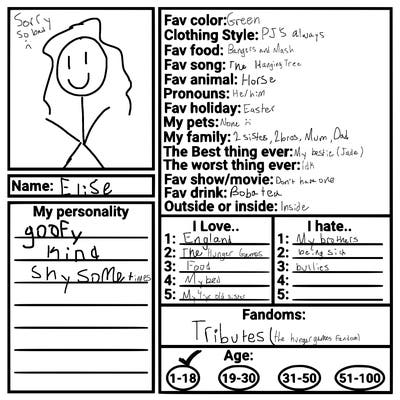 Sorry
So bad
Name: Elise
My personality
goofy
kind
shy sometimes
Fav color: Green
Clothing Style: PJ's always
Fav food: Bangers and Mash
Fav song: The Hanging Tree
Fav animal: Horse
Pronouns: He/him
Fav holiday: Easter
My pets: None :(
My family: 2 sisters, 2 bros, Mum, Dad
The Best thing ever: My bestie (Jade)
The worst thing ever: Idk
Fav show/movie: Don't have one
Fav drink: Boba tea
Outside or inside: Inside
I Love..
1: England
2: The Hunger Games
3: Food
4: My bed
5: My 4 yr old sister
I hate..
1: My brothers
2: being sick
3: bullies
4:
5:
Fandoms:
Tributes (the hunger games fandom)
Age:
1-18 19-30 31-50 51-100